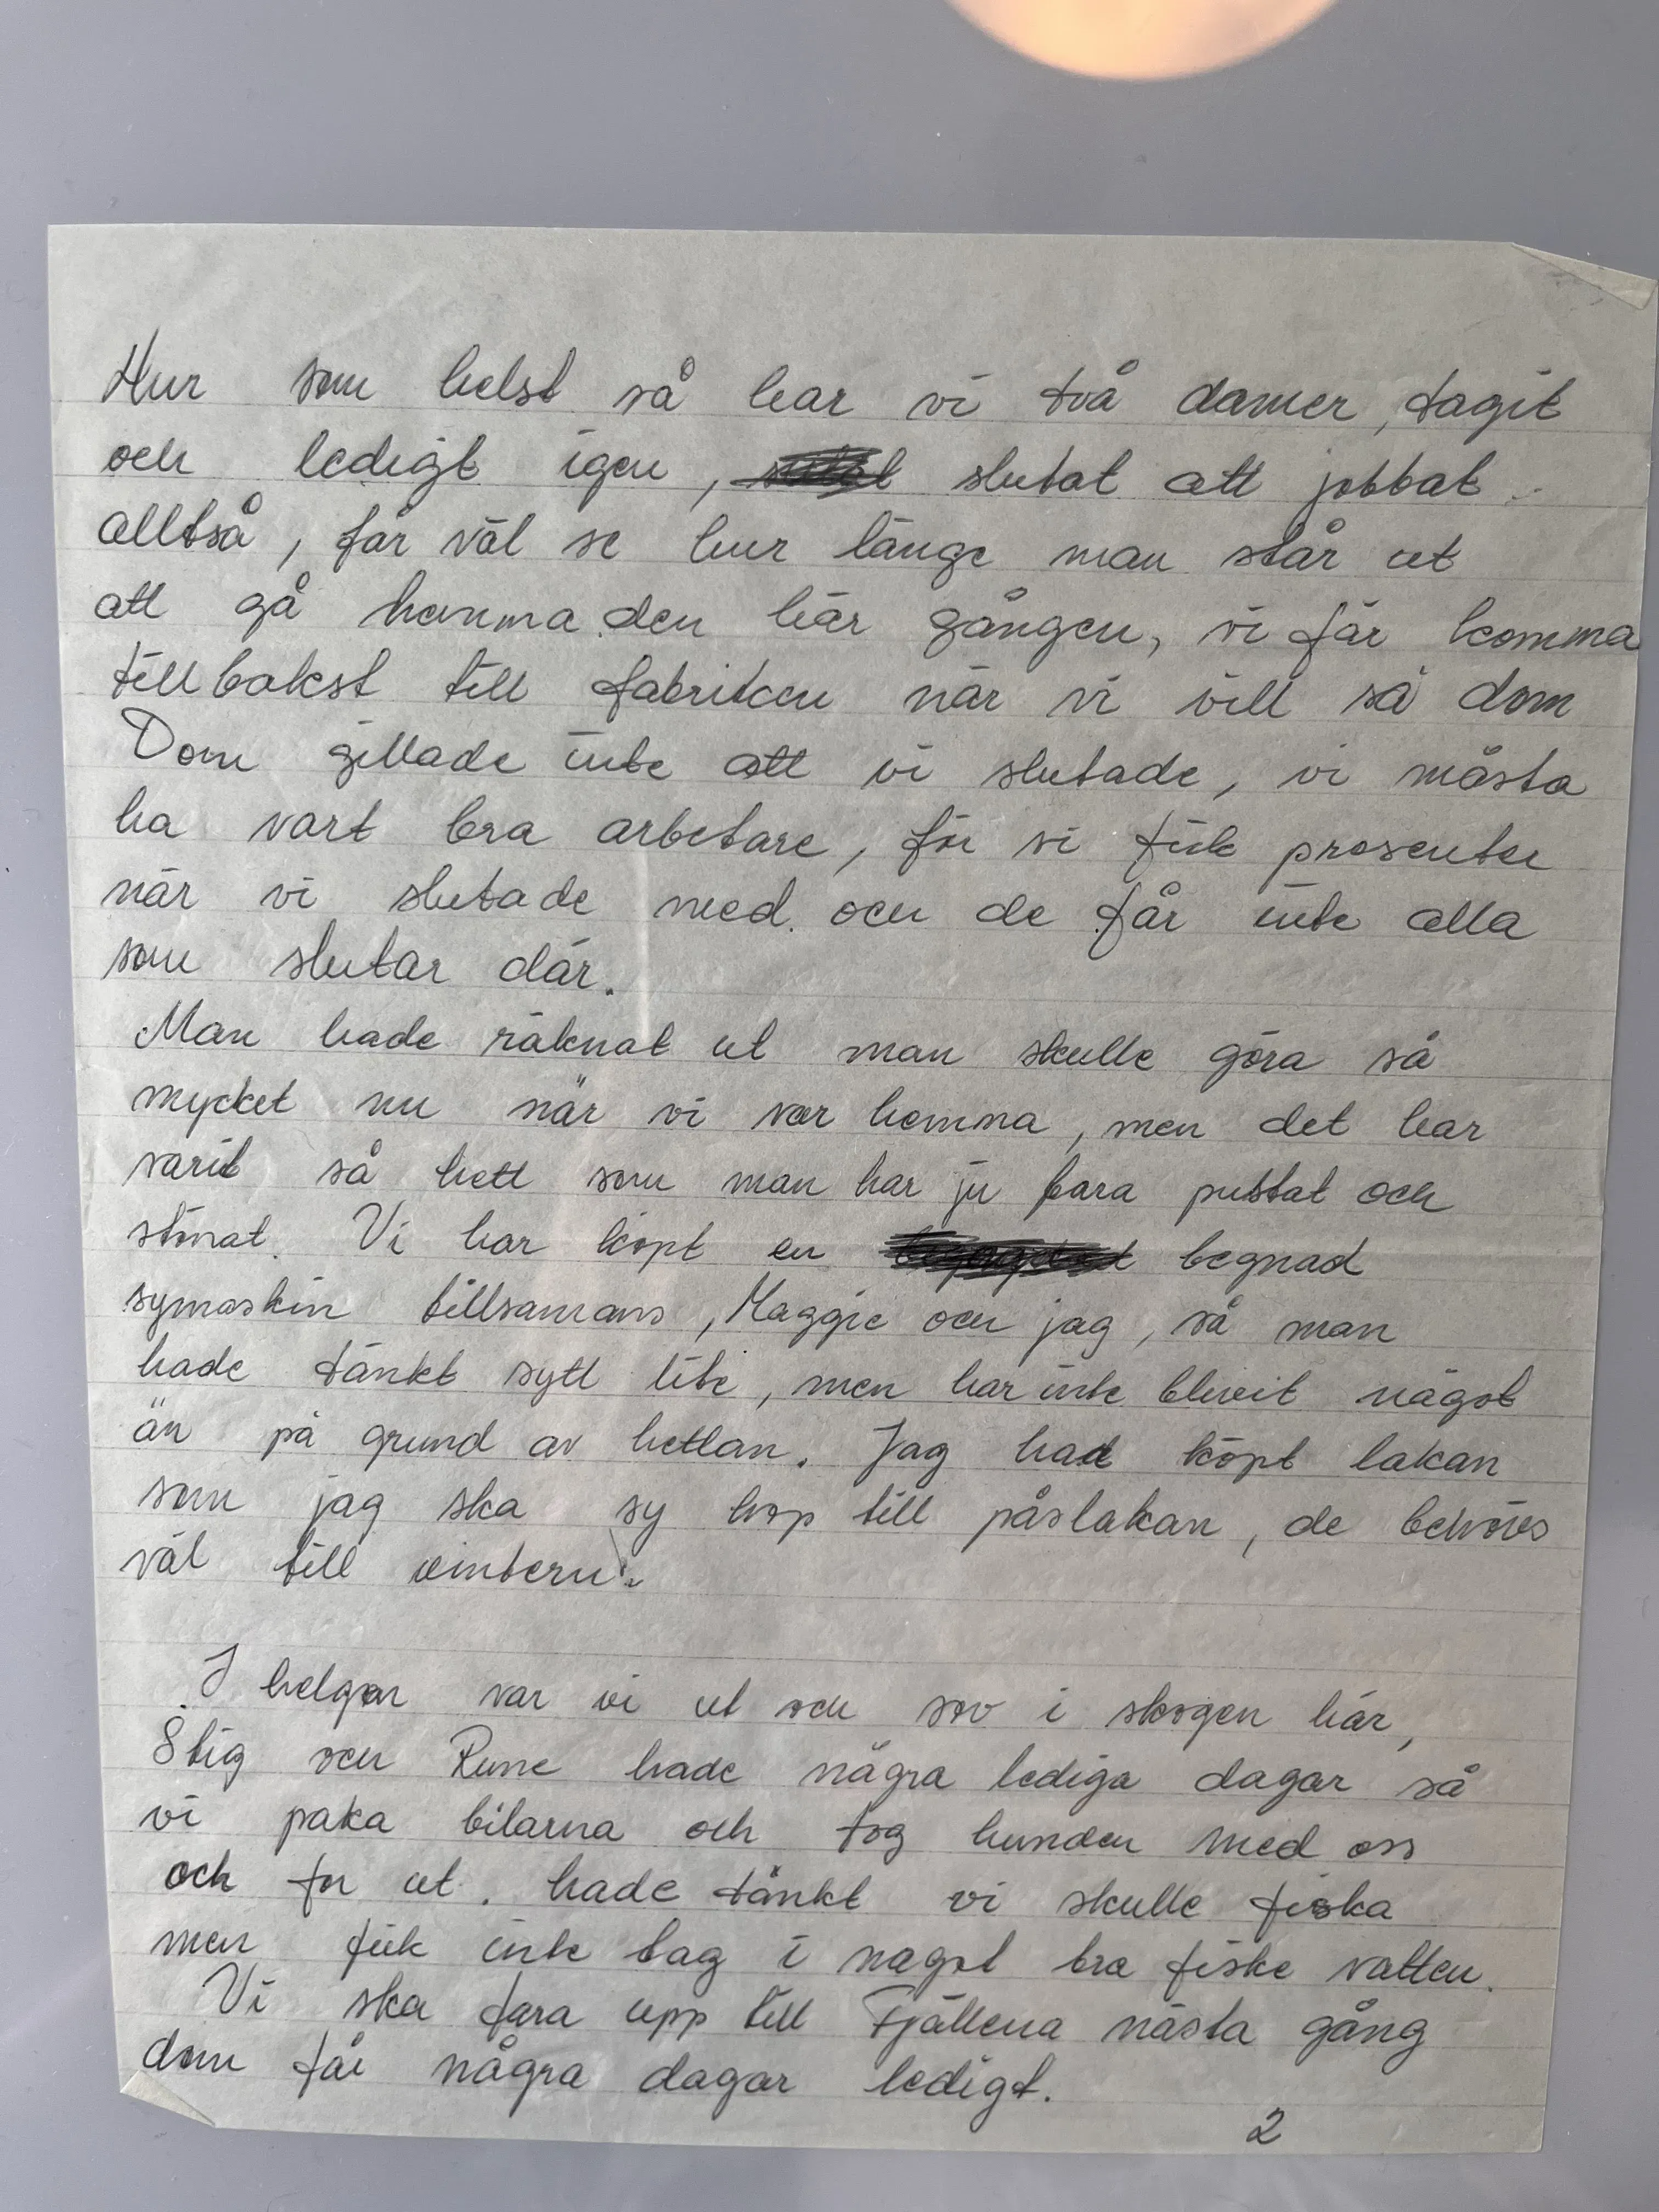 Hur som helst så har vi två damer, tagit
och ledigt igen, slutat att jobbat
alltså, får väl se hur länge man står ut
att gå hemma den här gången, vi får komma
tillbakst till fabriken när vi vill sa dom
Dom gillade inte att vi slutade, vi måsta
ha vart bra arbetare, för vi fick presenter
när vi slutade med och de får inte alla
som slutar där.
Man hade räknat ut man skulle göra så
mycket nu när vi var hemma, men det har
varit så hett som man har ju bara pustat och
stönat. Vi har köpt en begnad
symaskin tillsamans, Maggie och jag, så man
hade tänkt sytt lite, men har inte bliveit något
än på grund av hettan. Jag had köpt lakan
som jag ska sy hop till påslakan, de behövs
väl till vintern.
I helgen var vi ut och sov i skogen här,
Stig och Rune hade några lediga dagar så
vi paka bilarna och tog hunden med oss
och for ut. hade tänkt vi skulle fiska
men fick inte tag i nagot bra fiske vatten.
Vi ska fara upp till Fjällena nästa gång
dom får några dagar ledigt.
2